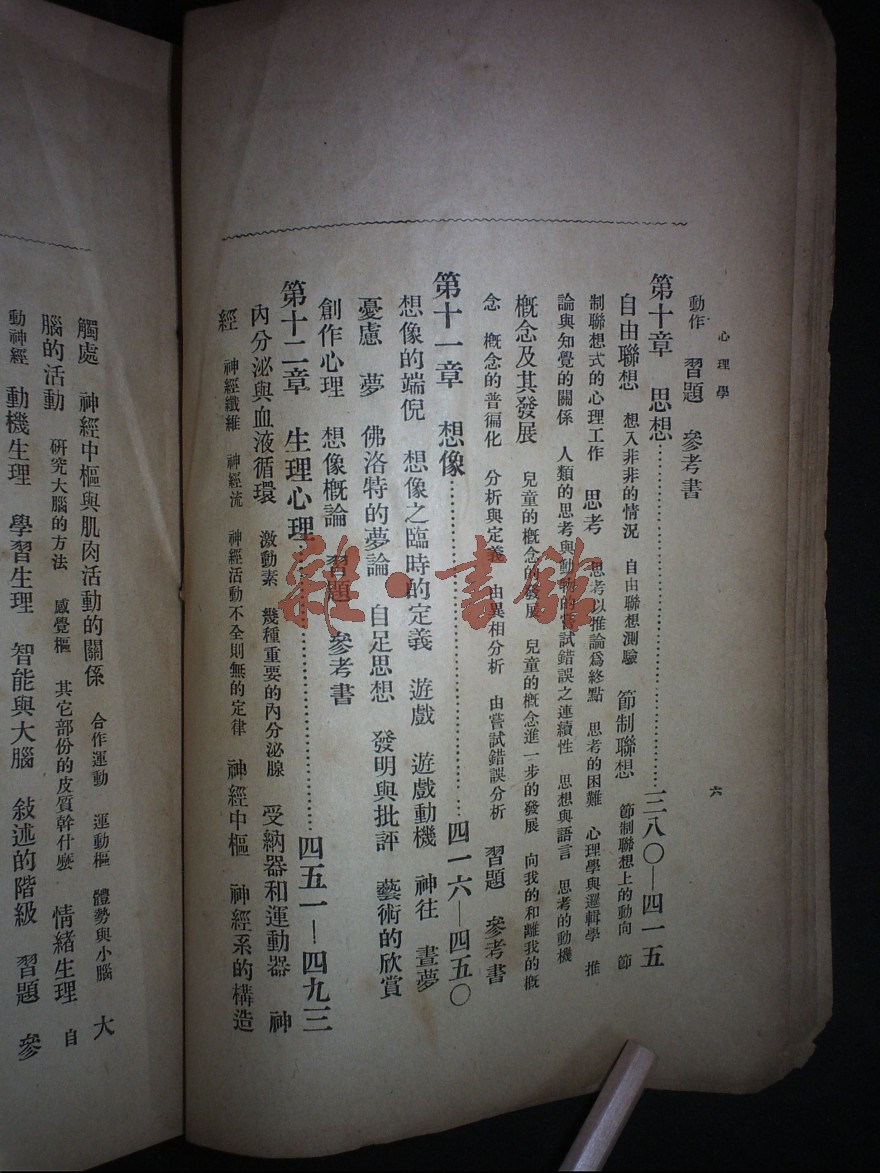 心理學
六
動作 習題 參考書
第十章 思想……三八〇—四一五
自由聯想 想入非非的情況 自由聯想測驗 節制聯想 節制聯想上的動向 節
制聯想式的心理工作 思考 思考以推論爲終點 思考的困難 心理學與邏輯學 推
論與知覺的關係 人類的思考與動物的嘗試錯誤之連續性 思想與語言 思考的動機
概念及其發展 兒童的概念的發展 兒童的概念進一步的發展 向我的和離我的概
念 概念的普徧化 分析與定義 由異相分析 由嘗試錯誤分析 習題 參考書
第十一章 想像……四一六—四五〇
想像的端倪 想像之臨時的定義 遊戲 遊戲動機 神往 晝夢
憂慮 夢 佛洛特的夢論 自足思想 發明與批評 藝術的欣賞
創作心理 想像概論 習題 參考書
第十二章 生理心理……四五一—四九三
內分泌與血液循環 激動素 幾種重要的內分泌腺 受納器和運動器 神
經 神經纖維 神經流 神經活動不全則無的定律 神經中樞 神經系的構造
觸處 神經中樞與肌肉活動的關係 合作運動 運動樞 體勢與小腦 大
腦的活動 研究大腦的方法 感覺樞 其它部份的皮質幹什麼 情緒生理 自
動神經 動機生理 學習生理 智能與大腦 敍述的階級 習題 參
雜·書館